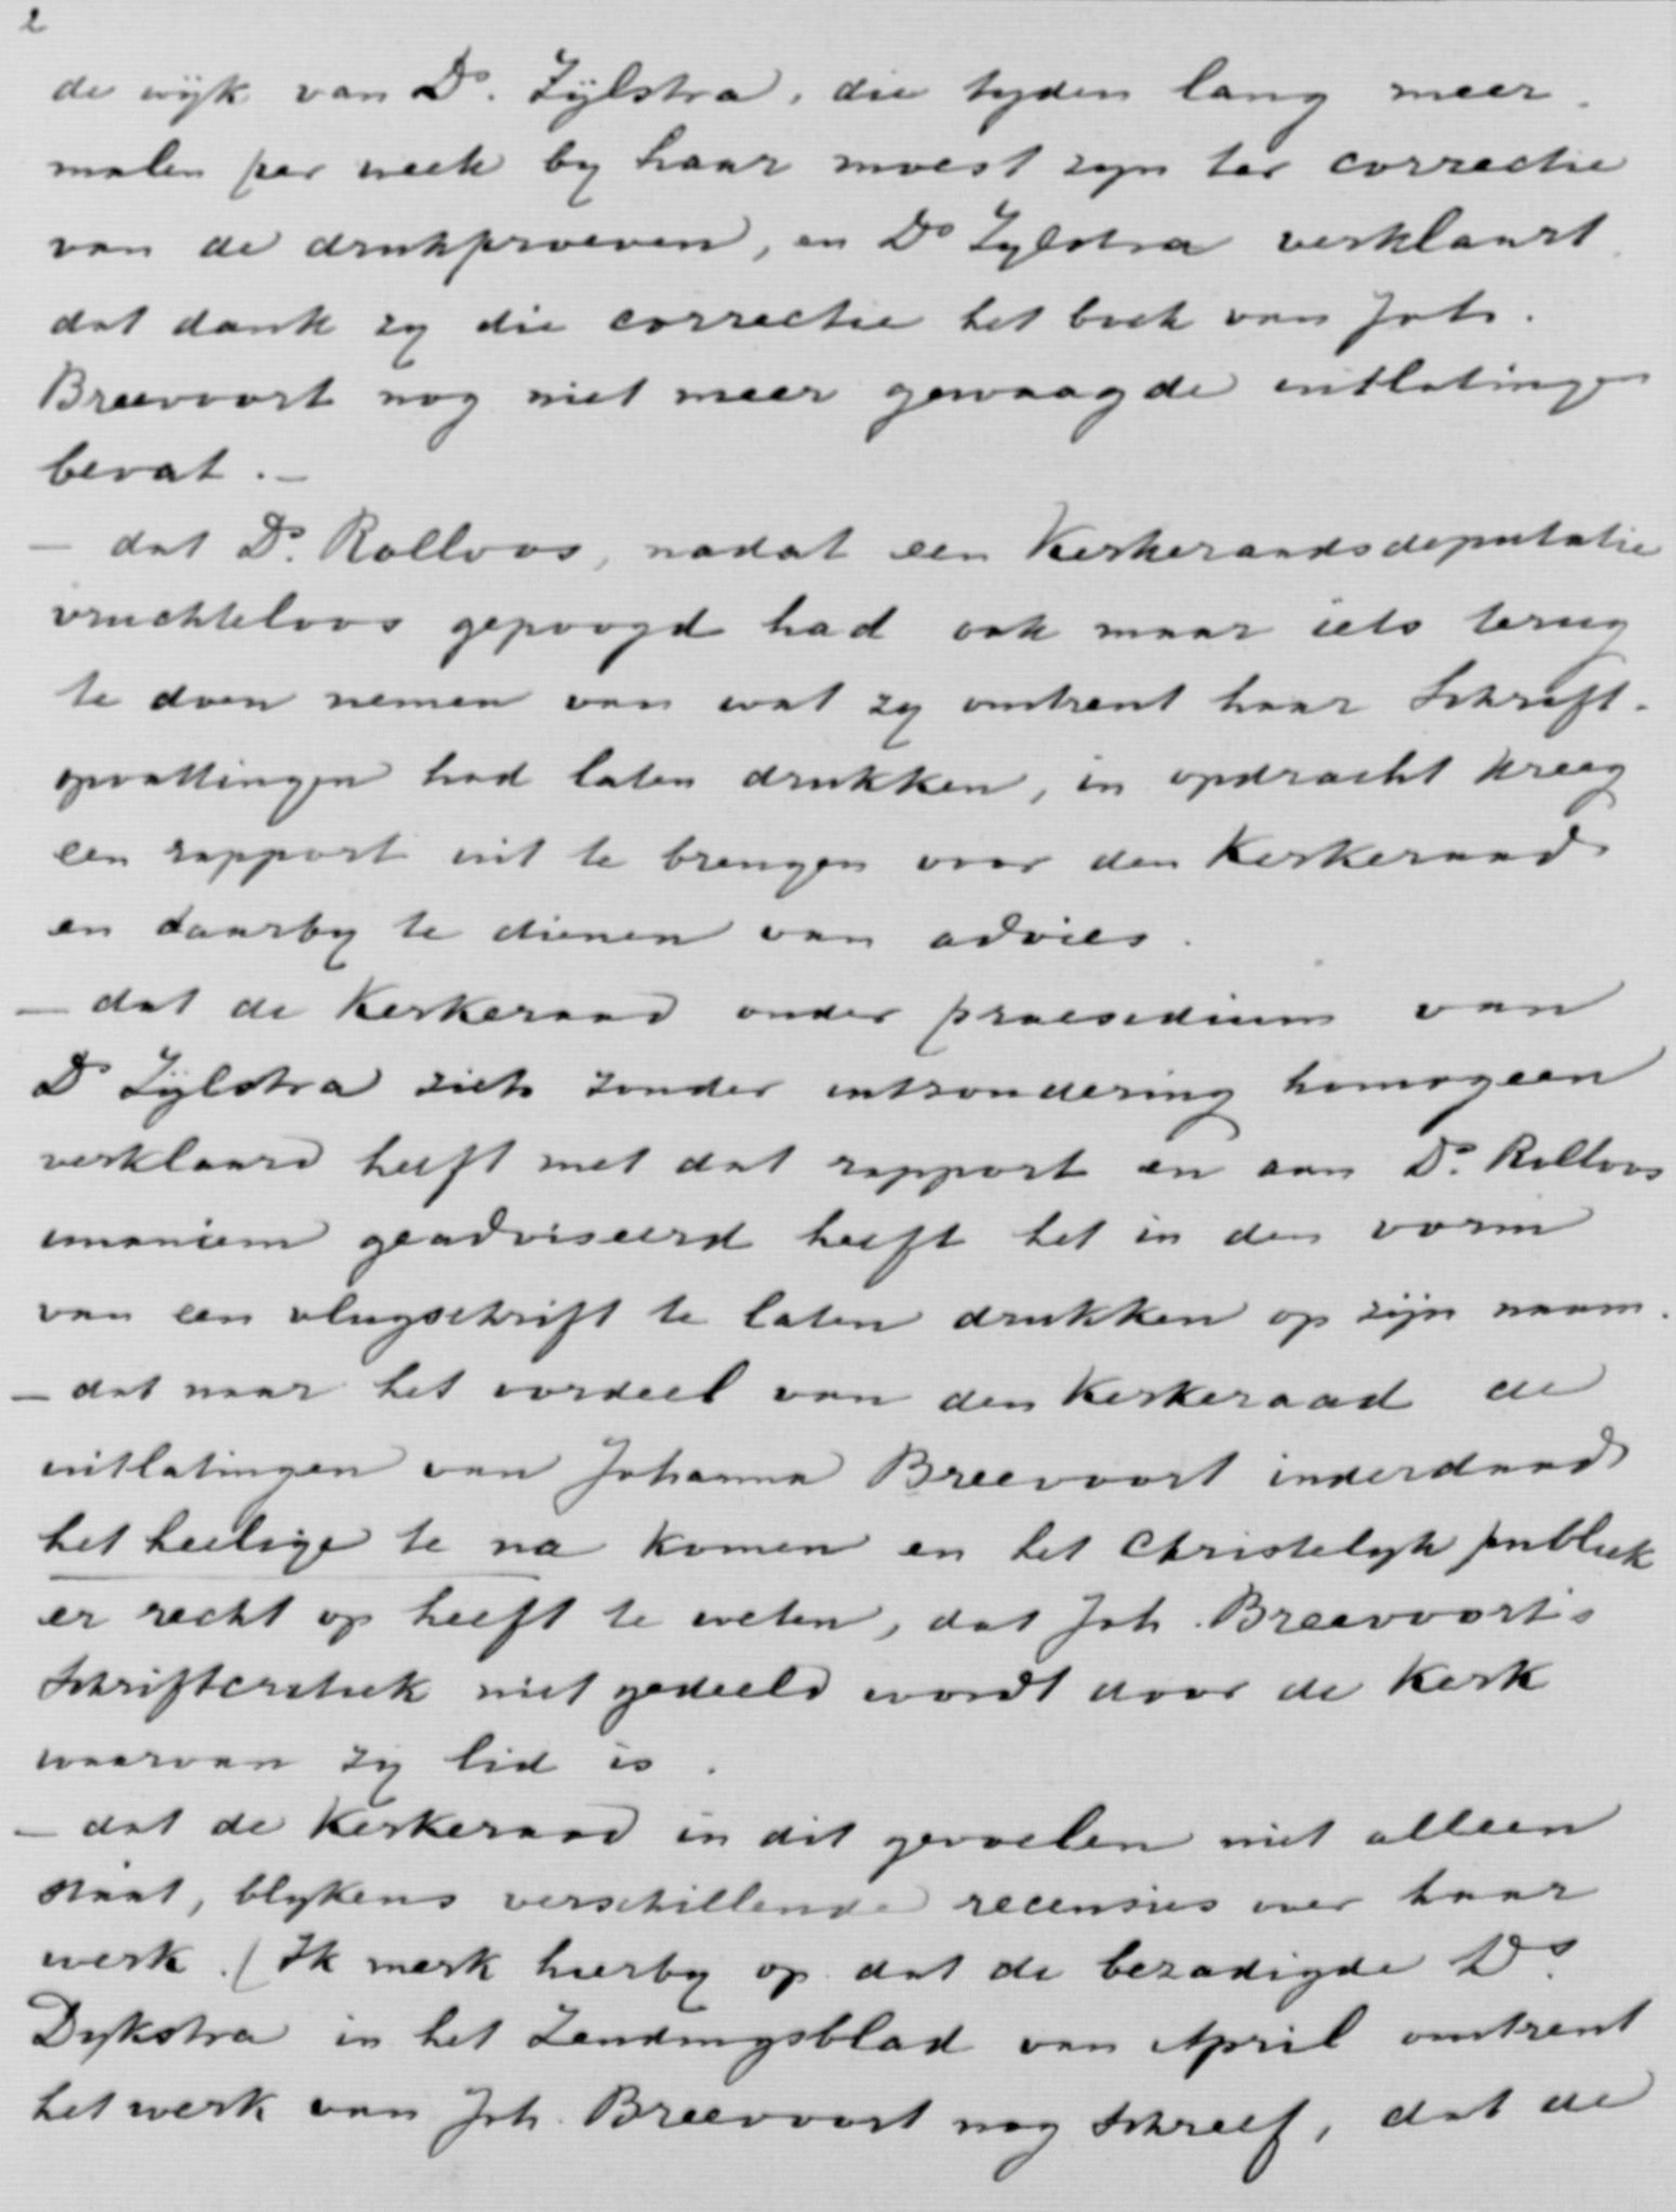 2
de wijk van Ds. Zijlstra, die tyden lang meer-
malen per week by haar moest zyn ter correctie
van de drukproeven, en Ds Zylstra verklaart
dat dank zy die correctie het boek van Joh.
Breevoort nog niet meer gewaagde uitlatingen
bevat. -
- dat Ds. Rolloos, nadat een Kerkeraadsdeputatie
vruchteloos gepoogd had ook maar iets terug
te doen nemen van wat zy omtrent haar Schrift-
opvattingen had laten drukken, in opdracht kreeg
een rapport uit te brengen voor den Kerkeraad
en daarby te dienen van advies.
- dat de Kerkeraad onder praesedium van
Ds Zijlstra zich zonder uitzondering homogeen
verklaard heeft met dat rapport en aan Ds. Rolloos
unaniem geadviseerd heeft het in den vorm
van een vlugschrift te laten drukken op zijn naam.
- dat naar het oordeel van den Kerkeraad de
uitlatingen van Johanna Breevoort inderdaad
het heilige te na komen en het Christelyk publiek
er recht op heeft te weten, dat Joh. Breevoort's
Schriftcritiek niet gedeeld wordt door de Kerk
waarvan zy lid is.
- dat de Kerkeraad in dit gevoelen niet alleen
staat, blykens verschillende recensies over haar
werk. (Ik merk hierby op dat de bezadigde Ds.
Dykstra in het Zendingsblad van April omtrent
het werk van Joh. Breevoort nog schreef, dat de